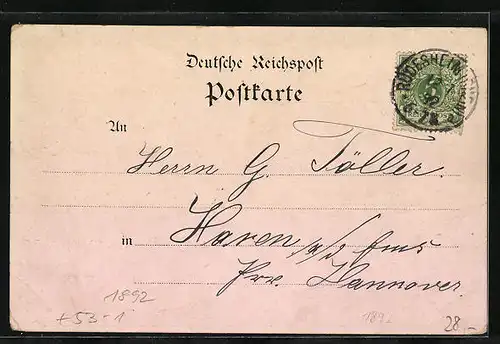 Deutsche Reichspost
Postkarte
RÜDESHEIM
5
An
Herrn G. Töller.
in
Haren a/d Ems
Prv. Hannover.
1892
+53-1
189
28,-